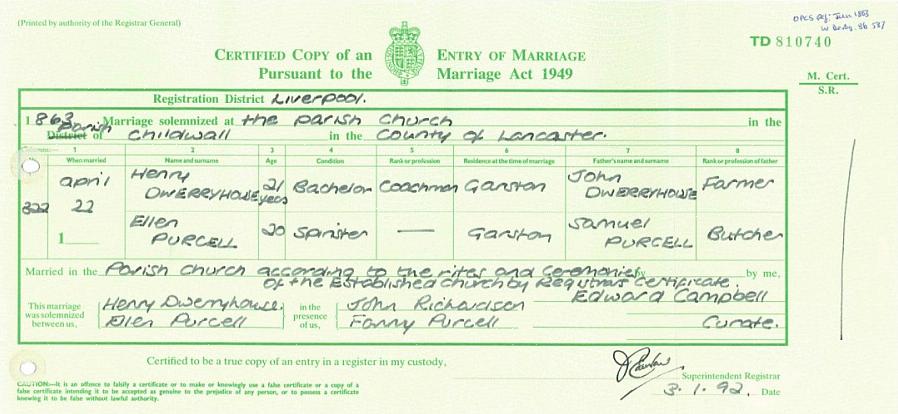 (Printed by authority of the Registrar General)
OPCS Ref: June 1863
W Derby. 8b 587
TD 810740
CERTIFIED COPY of an ENTRY OF MARRIAGE
Pursuant to the Marriage Act 1949
M. Cert.
S.R.
Registration District Liverpool.
1863 Marriage solemnized at the parish church in the
District Parish of Childwall in the County of Lancaster.
1 2 3 4 5 6 7 8
When married Name and surname Age Condition Rank or profession Residence at the time of marriage Father's name and surname Rank or profession of father
322 April 22 Henry DWERRYHOUSE 21 years Bachelor Coachman Garston John DWERRYHOUSE Farmer
1 Ellen PURCELL 20 Spinster — Garston Samuel PURCELL Butcher
Married in the Parish Church according to the rites and Ceremonies by by me,
of the Established Church by Registrars Certificate.
Edward Campbell
Curate.
This marriage was solemnized between us, Henry Dwerryhouse. Ellen Purcell in the presence of us, John Richardson Fanny Purcell
Certified to be a true copy of an entry in a register in my custody,
Superintendent Registrar
3.1.92. Date
CAUTION:—It is an offence to falsify a certificate or to make or knowingly use a false certificate or a copy of a
false certificate intending it to be accepted as genuine to the prejudice of any person, or to possess a certificate
knowing it to be false without lawful authority.